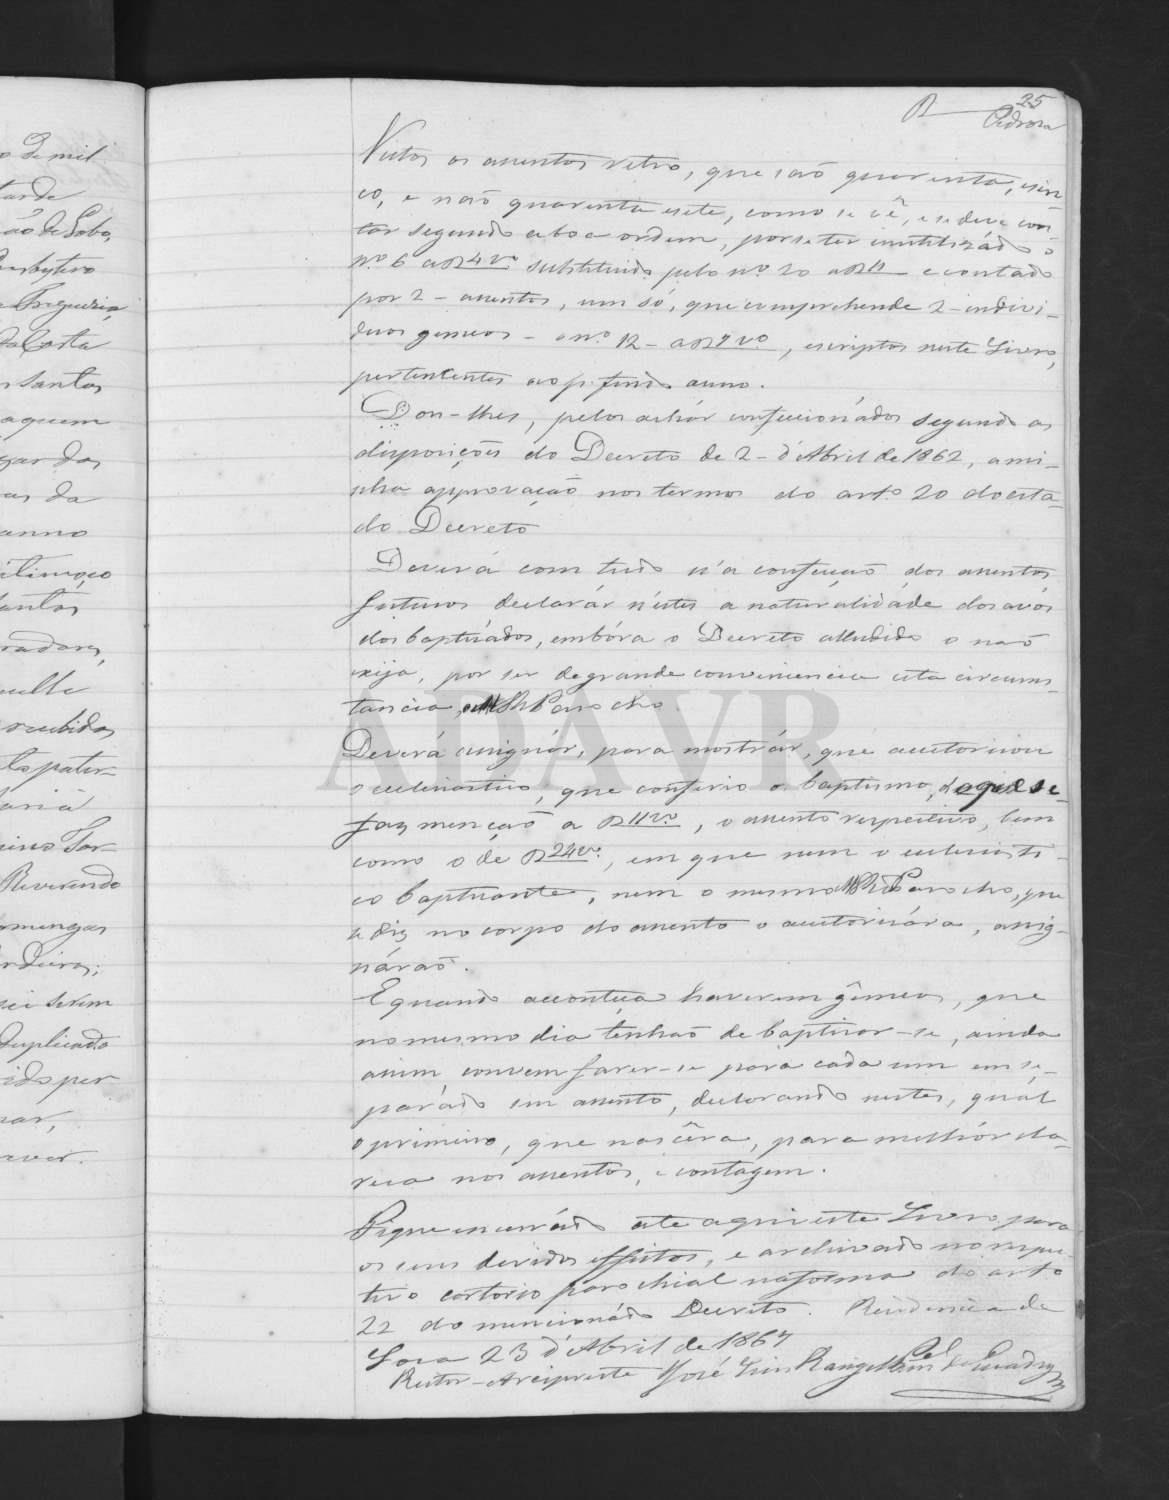 25
Pedrosa
Vistos os assentos retro, que são quarenta, e sin
co, e não quarenta e sete, como se vê, e se deve con
tar segundo a boa ordem, por se ter inutilizádo o
nº 6 a 4 vº substituido pelo nº 20 a 11 e contado
por 2 - assentos, um só, que comprehende 2 - indivi-
duos gemeos - o nº 12 - a 7 vº, escriptos neste Livro,
pertencentes ao p. findo anno.
Dou-lhes, pelos achár confeccionádos segundo as
disposições do Decreto de 2 - d'Abril de 1862, a mi-
nha approvação nos termos do artº 20 do cita-
do Decreto
Deverá com tudo n'a confecção dos assentos
futuros declarár n'estes a naturalidáde dos avós
dos baptisádos, embóra o Decreto alludido o não
exija, por ser de grande conveniencia esta circums-
tancia, o Rdo Parocho.
Deverá assignár, para mostrár, que auctorisou
o eccleziastico, que conferio o baptismo, de que se
faz menção a 11 vº, o assento respectivo, bem
como o de 24 vº, em que nem o eccleziasti-
co baptisante, nem o mesmo Rdo Parocho, que
se diz no corpo do assento o auctorisára, assig-
nárão.
E quando aconteça haverem gêmeos, que
no mesmo dia tenhão de baptisar-se, ainda
assim convem fazer-se para cada um em se-
parádo um assento, declarando nestes, quál
o primeiro, que nascêra, para melhór cla-
reza nos assentos, e contagem.
Fique encerrádo até aqui este Livro para
os seus devidos effeitos, e archivado no respec-
tivo cartorio parochial na forma do artº
22 do mencionádo Decreto. Residencia de
23 d'Abril de 1867
Reitor - Arcipreste José Luis Rangel de Quadros
o de mil
tarde
ão de Lobo,
Presbytero
Freguezia,
da Costa
Santos
aquem
gar das
as da
anno
itimo, e o
antos
radores,
recebidos
los pater-
aria
Reverendo
omingas
rdeiros;
serem
duplicado
ido per
nar,
ever.
ADAVR